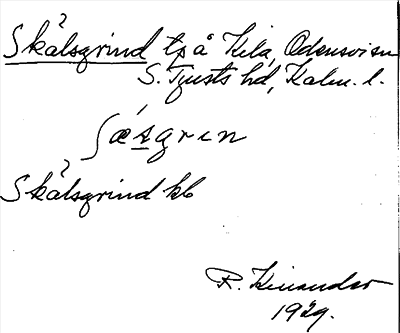 Skålsgrind tp å Kila, Odensvi sn
S. Tjusts hd, Kalm. l.
Skålsgrind kb
R. Kinander
1929.